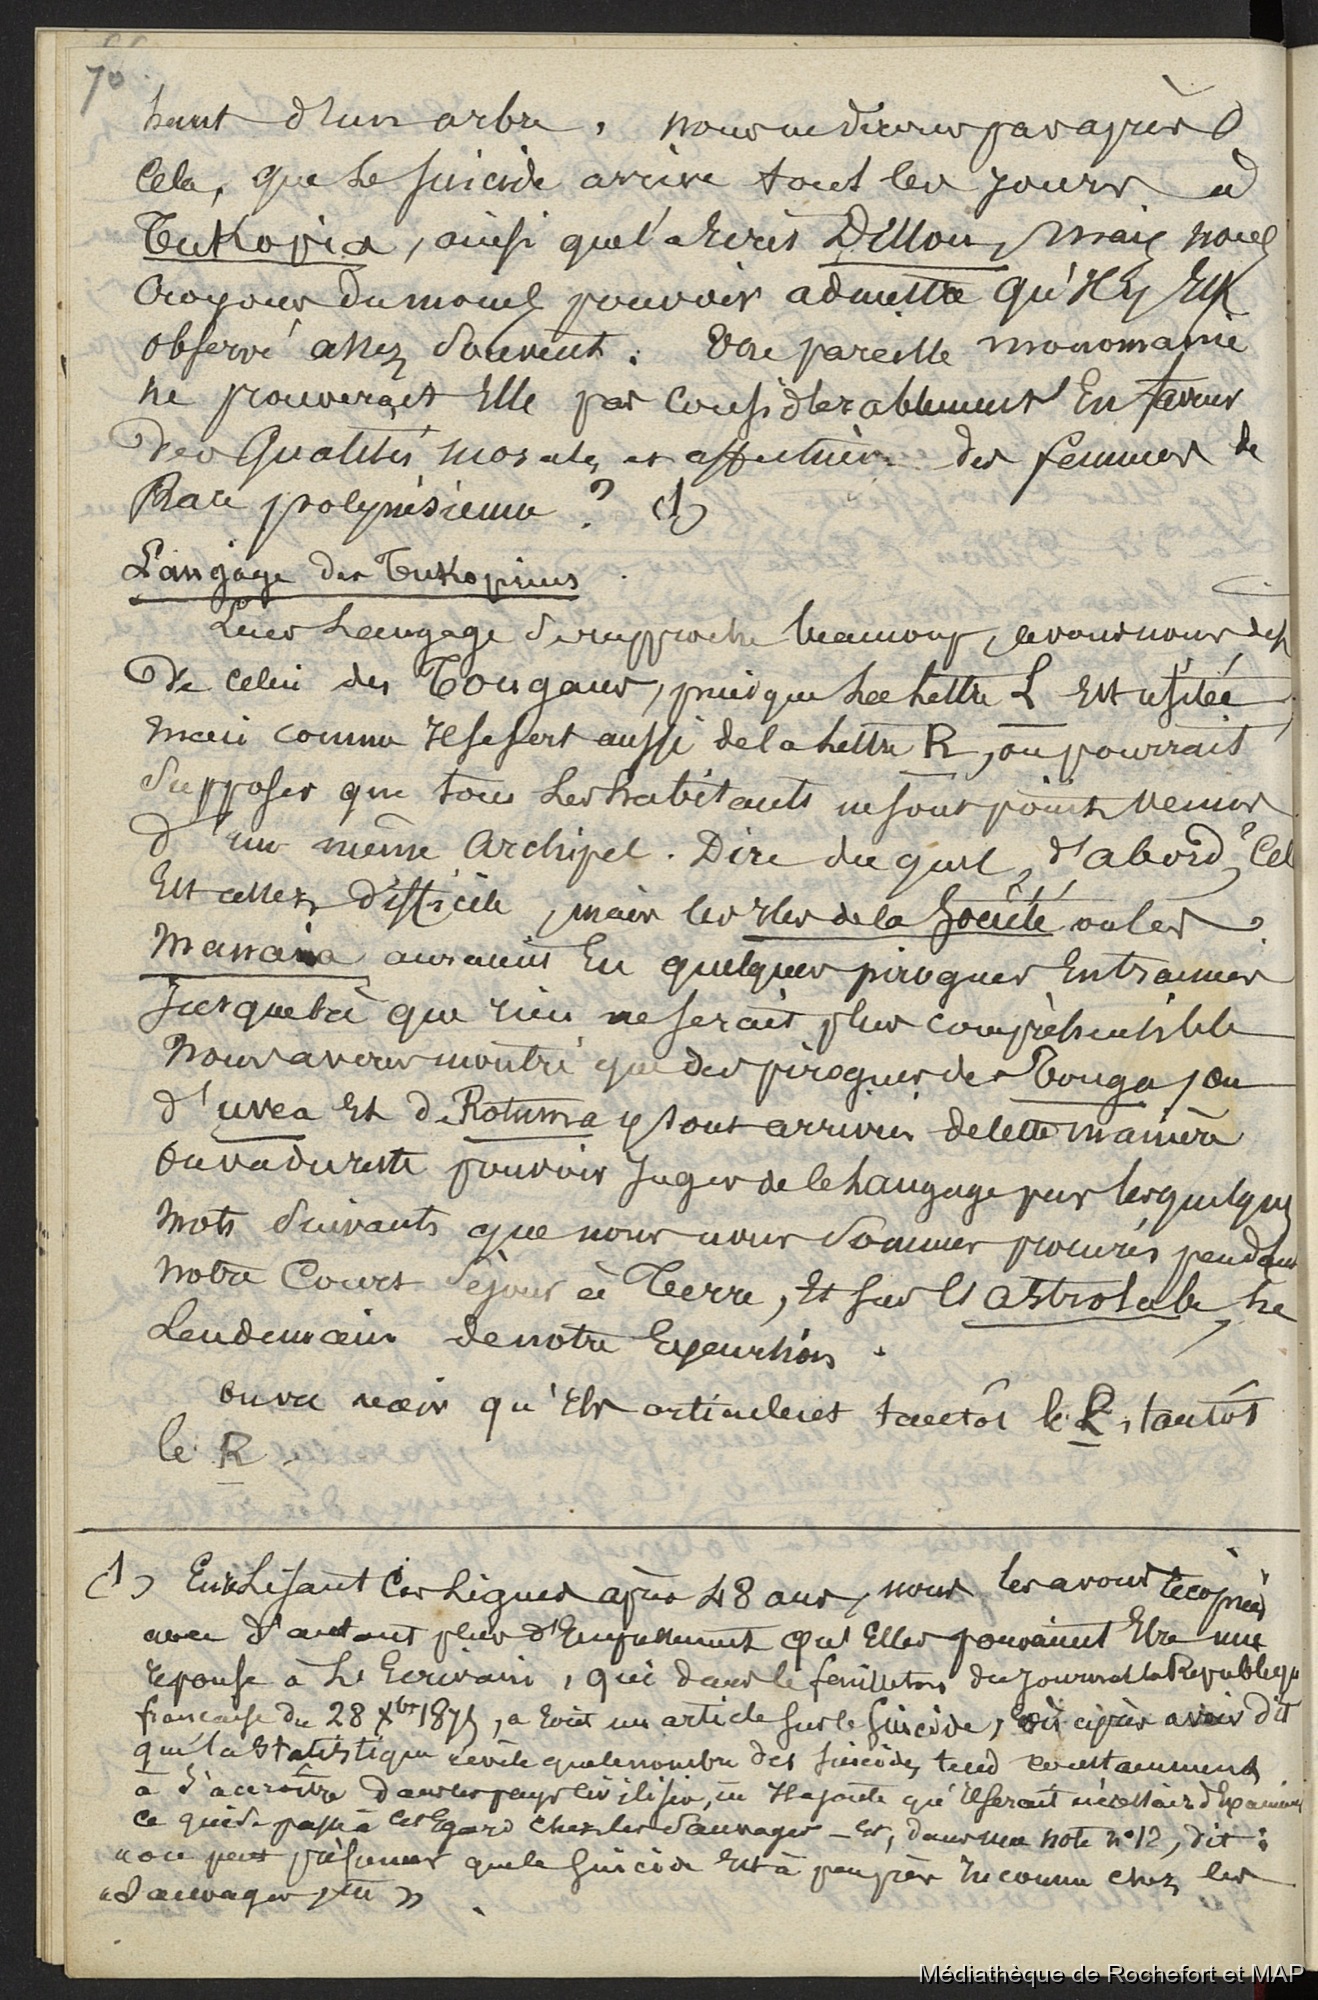 70
haut d'un arbre. nous ne dirons pas après
cela, que le suicide arrive tous les jours à
Tukopia, ainsi que l'a écrit Dillon, mais nous
croyons du moins pouvoir admettre qu'il y est
observé assez souvent. Une pareille monomanie
ne prouverait elle pas considérablement en faveur
des qualités morales et affectives des femmes de
Race polynésienne ? (1)
Langage des Tukopiens
Leur langage se rapproche beaucoup, avons nous dit
de celui des Tongans, puisque la lettre L est usitée
mais comme il se sert aussi de la lettre R, on pourrait
supposer que tous les habitants ne sont point venus
d'un même archipel. Dire duquel, d'abord, cel
est assez difficile, mais les iles de la Société ou les
Manaia auraient eu quelques pirogues entrainées
jusque là que rien ne serait plus compréhensible
Nous avons montré que des pirogues des Tonga, ou
d'uvea et de Rotuma y sont arrivées de cette manière
On va du reste pouvoir juger de le langage par les quelques
mots suivants que nous nous sommes procurés pendant
notre court séjour à Terre, et sur l'astrolabe, le
lendemain de notre excursion.
on va voir qu'ils articulent tantôt le L, tantôt
le R.
(1) En lisant ces lignes après 48 ans, nous les avons recopiées
avec d'autant plus d'empressement qu'elles pouvaient être une
réponse à l'Ecrivain, qui dans le feuilleton du journal la République
française du 28 Xbr 1875, a écrit un article sur le suicide, où après avoir dit
que la statistique révèle que le nombre des suicides tend constamment
à s'accroître dans les pays civilisés, il ajoute qu'il serait nécessaire d'examiner
ce qui se passe à cet égard chez les sauvages - et, dans une note n° 12, dit :
"on peut présumer que le suicide est à peu près inconnu chez les
"sauvages, »
Médiathèque de Rochefort et MAP